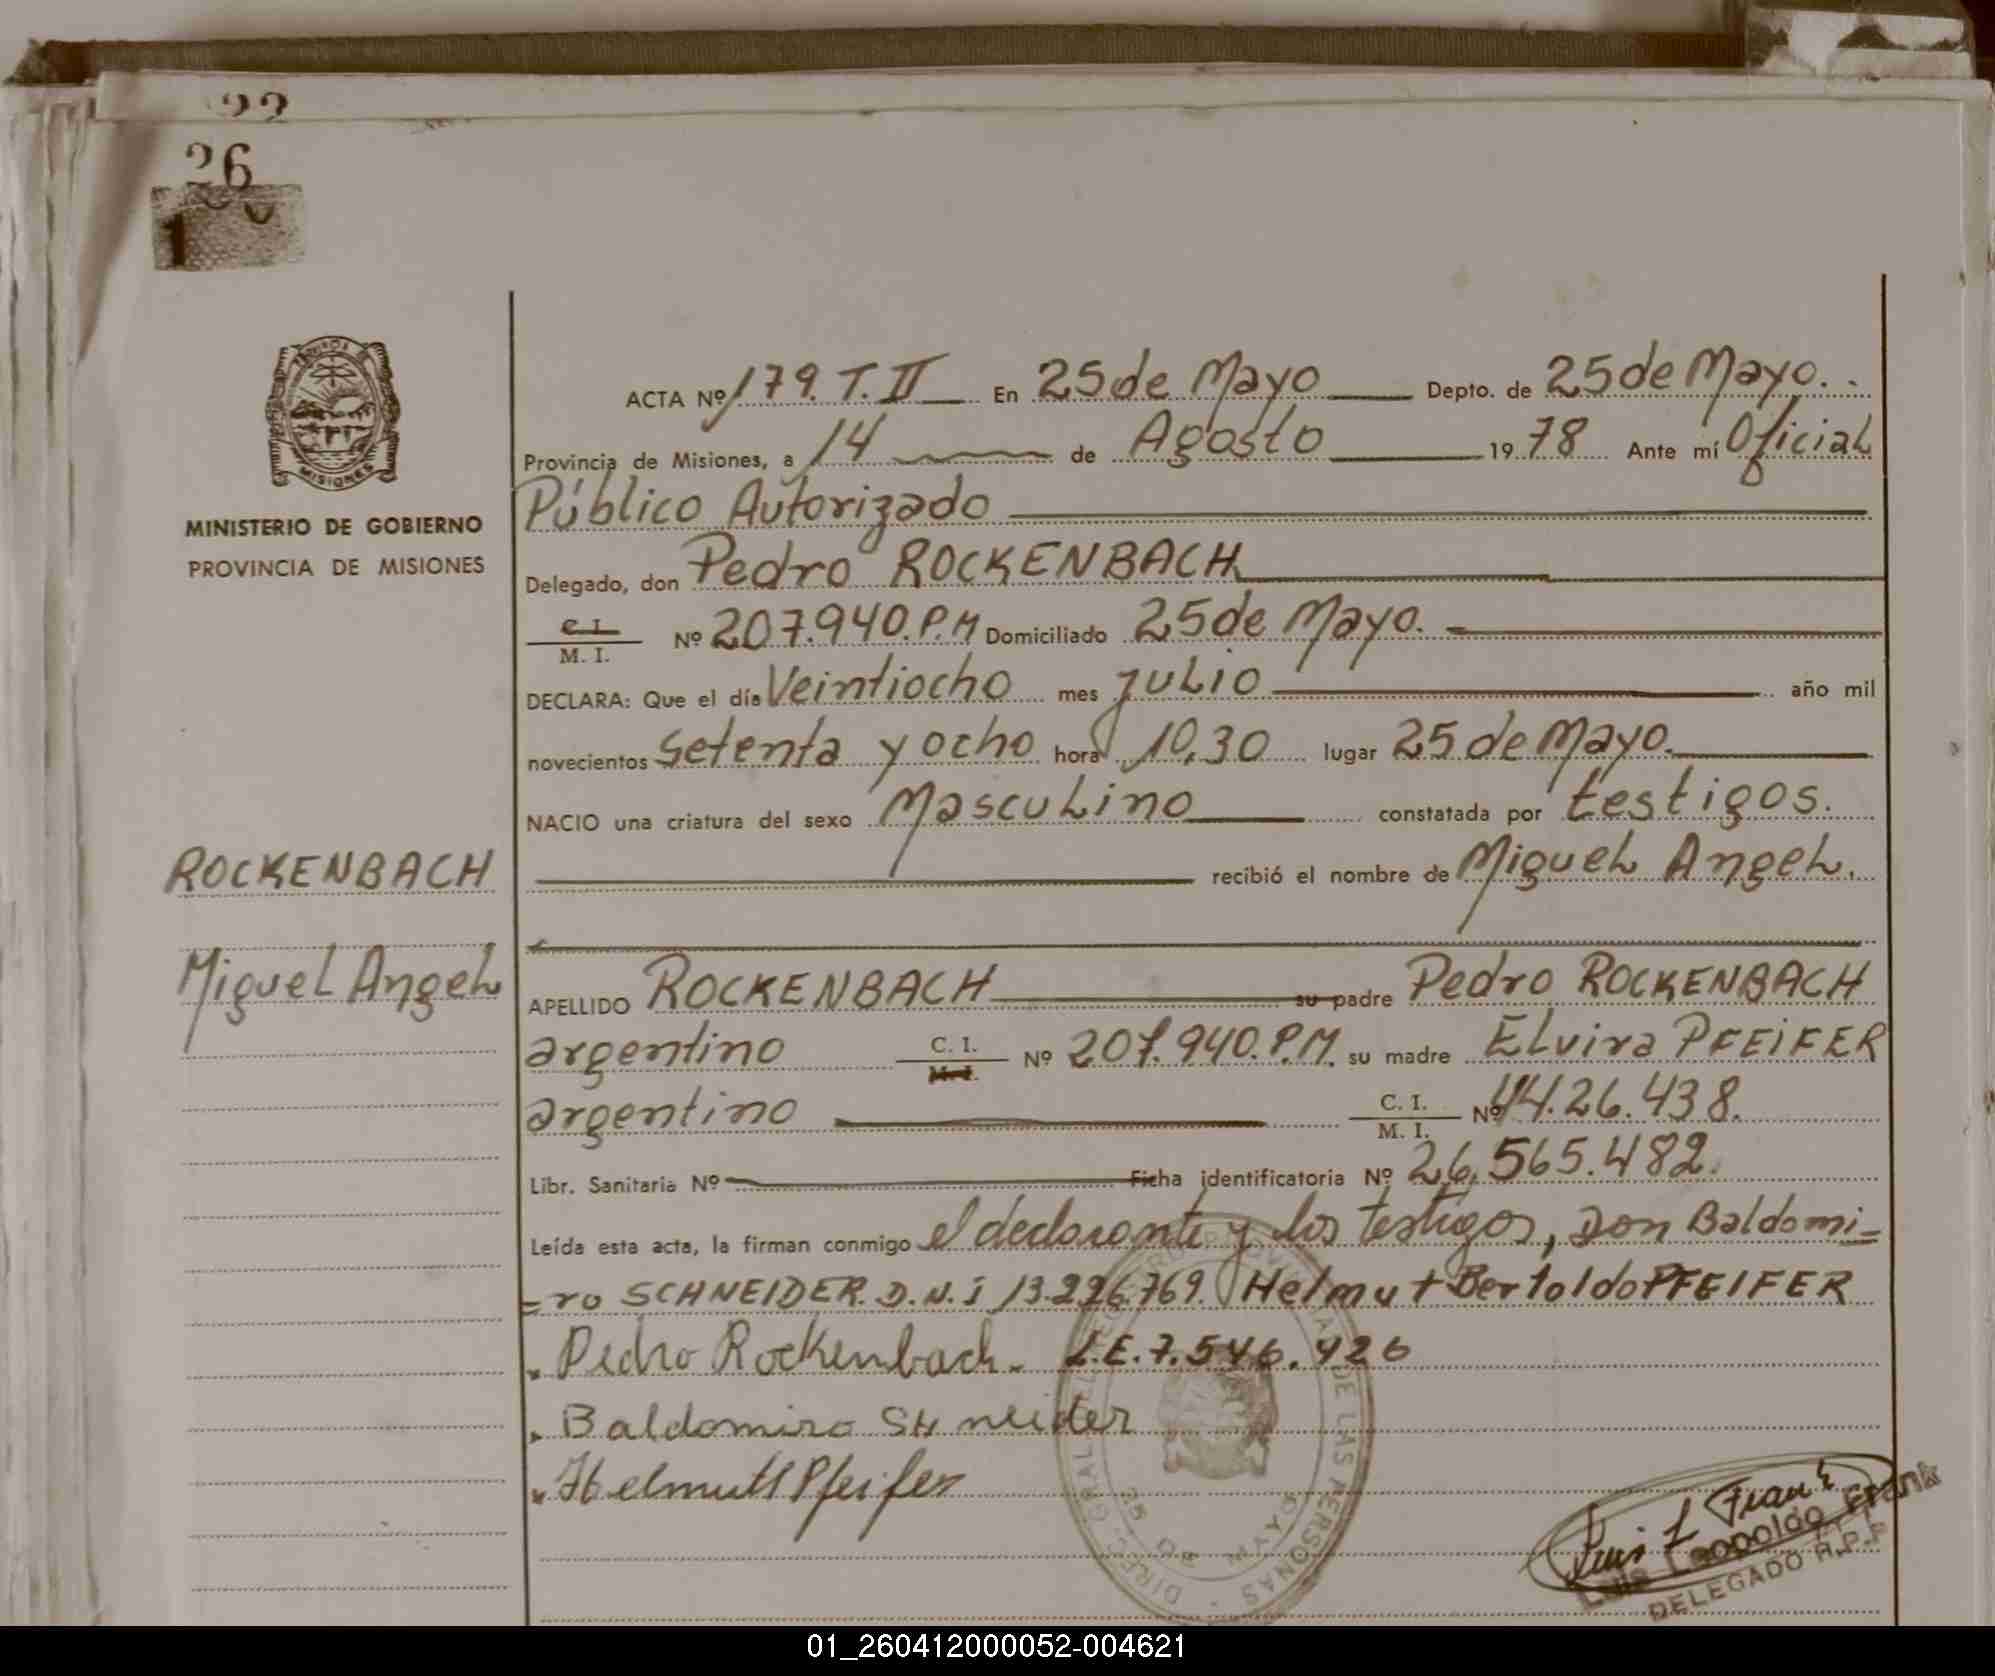 26
PROVINCIA DE
MISIONES
MINISTERIO DE GOBIERNO
PROVINCIA DE MISIONES
ROCKENBACH
Miguel Angel
ACTA Nº 179. T. II En 25 de Mayo Depto. de 25 de Mayo.
Provincia de Misiones, a 14 de Agosto 1978 Ante mí Oficial
Público Autorizado
Delegado, don Pedro ROCKENBACH
C. I.
M. I. Nº 207.940.P.M Domiciliado 25 de Mayo.
DECLARA: Que el día Veintiocho mes julio año mil
novecientos setenta y ocho hora 10,30 lugar 25 de Mayo.
NACIO una criatura del sexo Masculino constatada por testigos.
recibió el nombre de Miguel Angel.
APELLIDO ROCKENBACH su padre Pedro ROCKENBACH
argentino C. I. M. I. Nº 207.940.P.M. su madre Elvira PFEiFER
argentino C. I. M. I. Nº 44.26.438.
Libr. Sanitaria Nº Ficha identificatoria Nº 26.565.482.
Leída esta acta, la firman conmigo el declarante y los testigos, Don Baldomi=
=ro SCHNEIDER. D.N.i 13.226.769. Helmut Bertoldo PFEIFER
Pedro Rockenbach. L.E.7.546.426
Baldomiro SHneider
Helmuth Pfeifer
DIREC. GRAL. DEL DE LAS PERSONAS
25 DE MAYO
Luis L Frank
Luis Leopoldo Frank
DELEGADO R.P.P
01_260412000052-004621